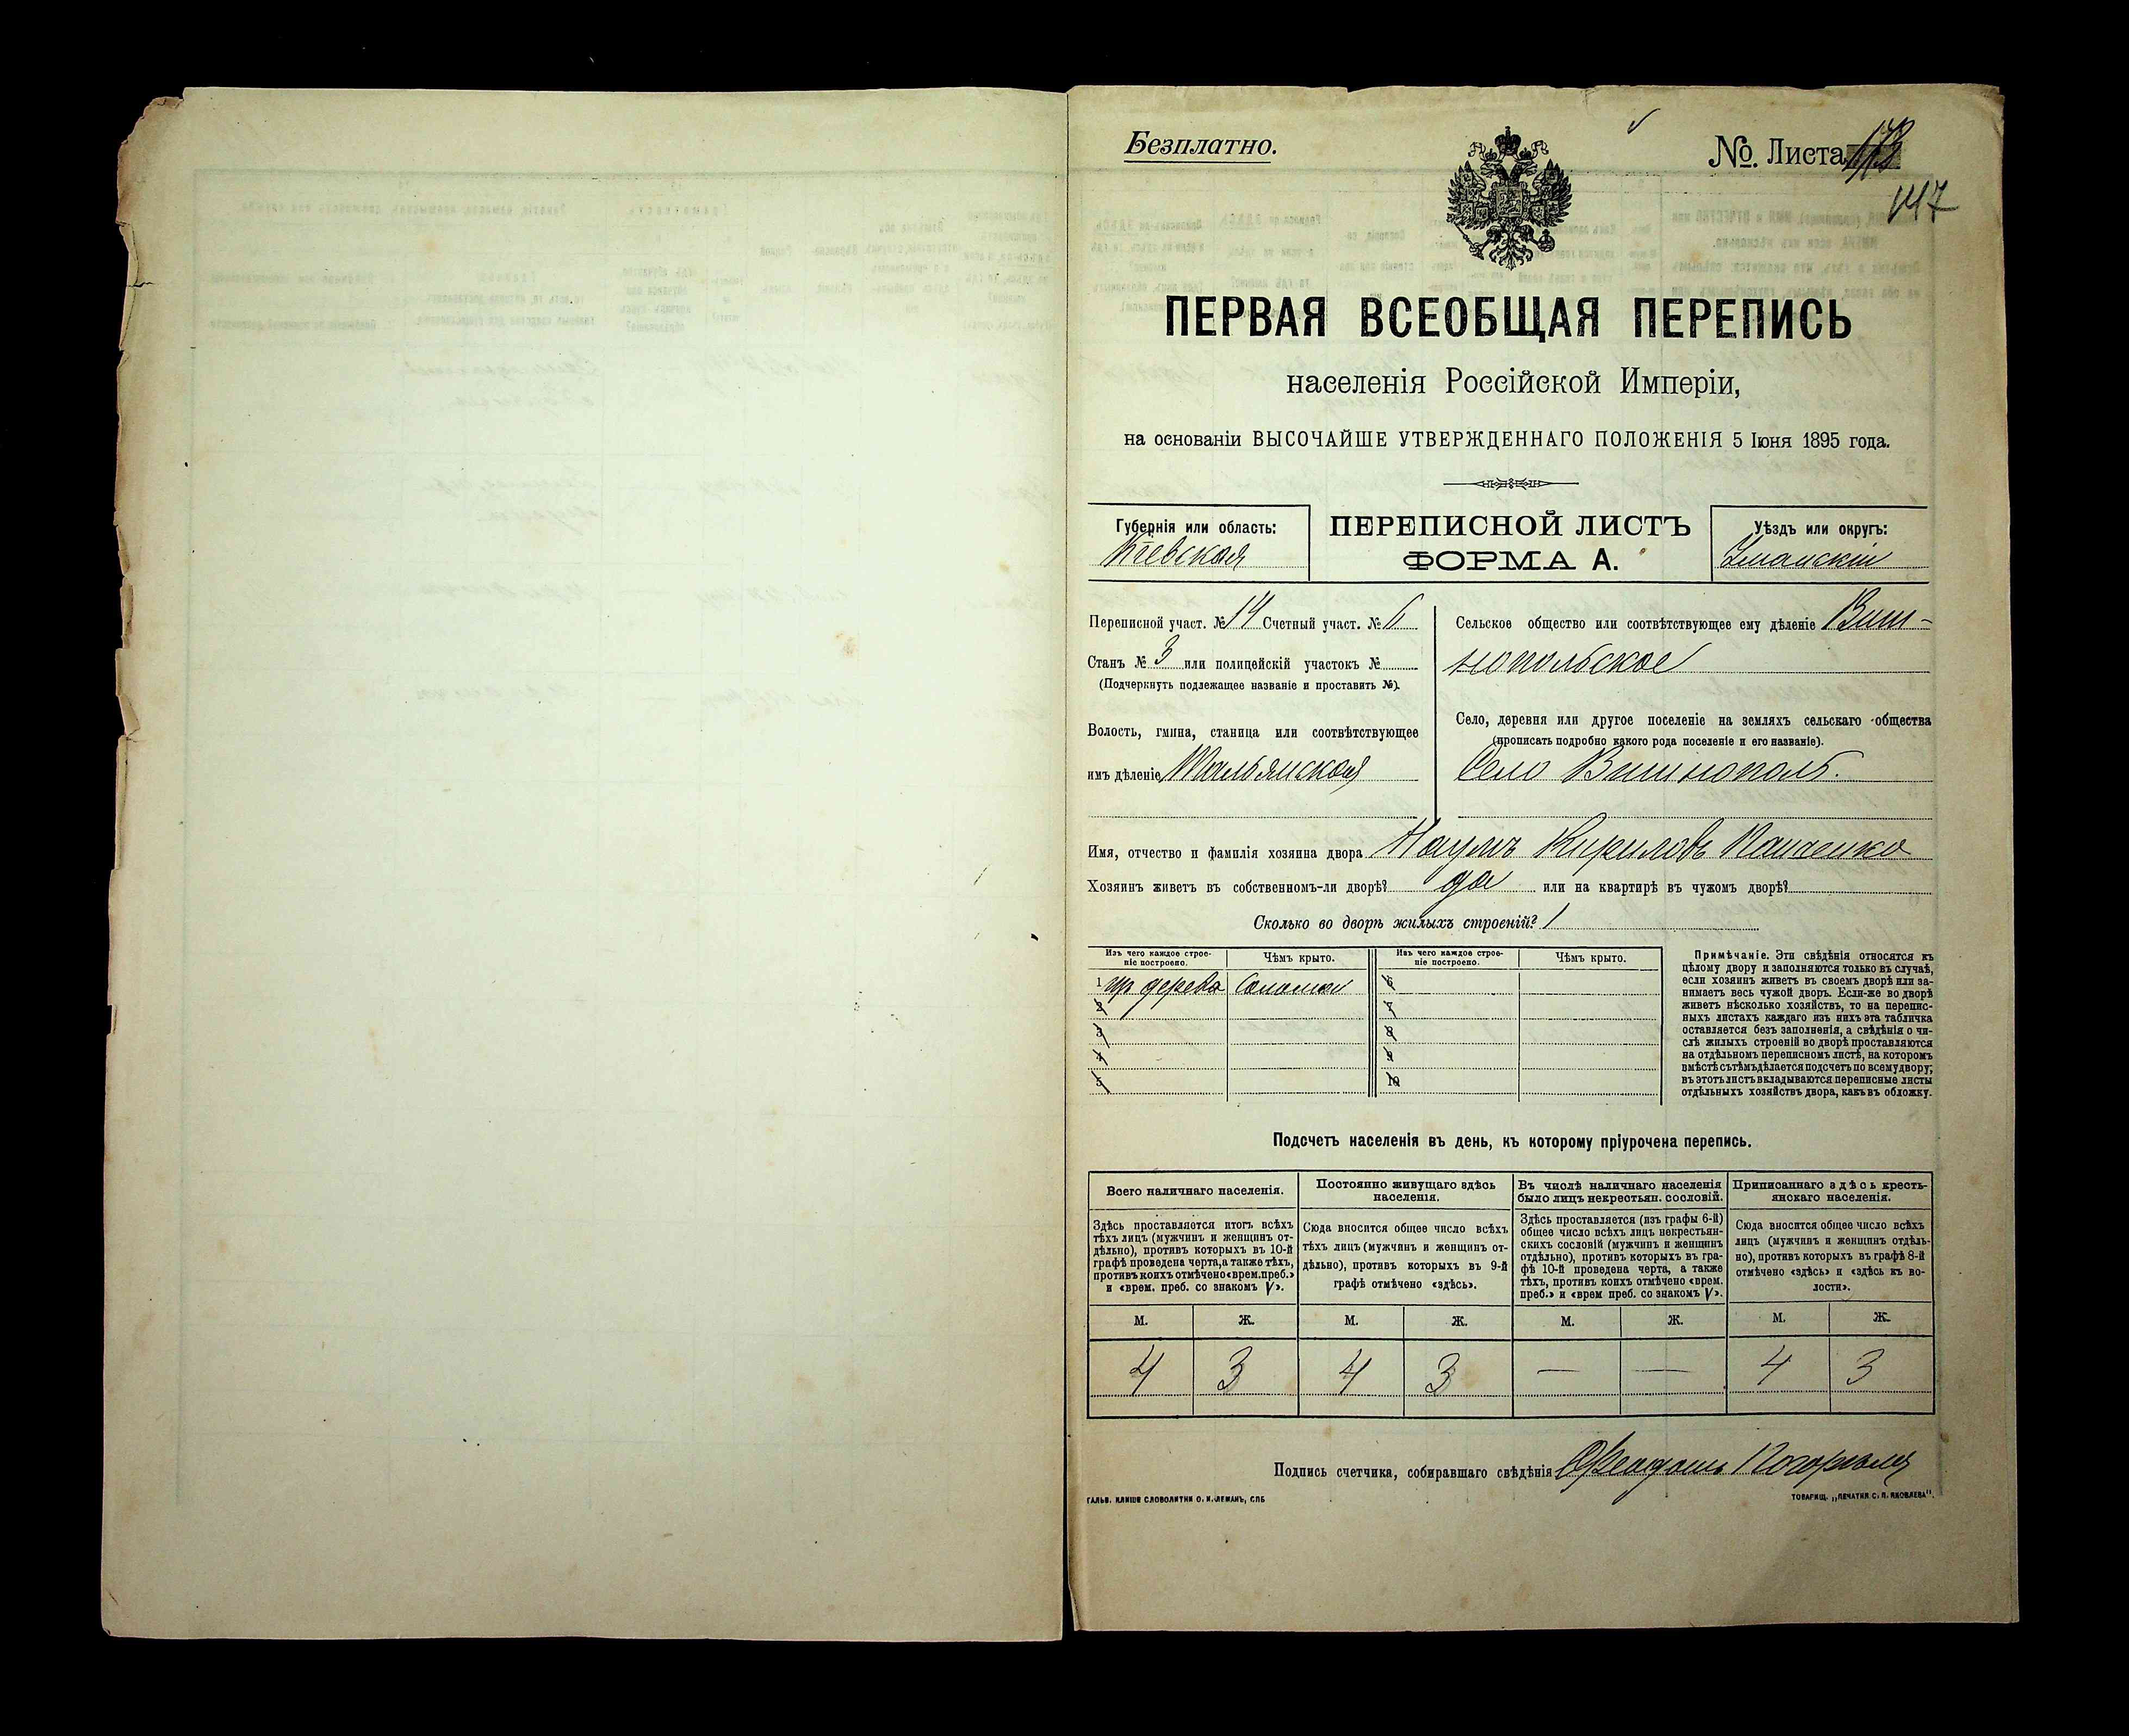 Безплатно.
№. Листа 173
147
ПЕРВАЯ ВСЕОБЩАЯ ПЕРЕПИСЬ
населенія Россійской Имперіи,
на основаніи ВЫСОЧАЙШЕ УТВЕРЖДЕННАГО ПОЛОЖЕНІЯ 5 Іюня 1895 года.
Губернія или область:
Кіевская
ПЕРЕПИСНОЙ ЛИСТЪ
ФОРМА А.
Уѣздъ или округъ:
Уманскій
Переписной участ. № 14 Счетный участ. № 6
Станъ № 3 или полицейскій участокъ №
(Подчеркнуть подлежащее названіе и проставить №).
Волость, гмина, станица или соотвѣтствующее
имъ дѣленіе Тальянская
Сельское общество или соотвѣтствующее ему дѣленіе Виш-
нопольское
Село, деревня или другое поселеніе на земляхъ сельскаго общества
(прописать подробно какого рода поселеніе и его названіе).
Село Вишнополь.
Имя, отчество и фамилія хозяина двора Наумъ Кириловъ
Хозяинъ живетъ въ собственномъ-ли дворѣ? да или на квартирѣ въ чужомъ дворѣ?
Сколько во дворѣ жилыхъ строеній? 1
Изъ чего каждое строе-
ніе построено.
Чѣмъ крыто.
Изъ чего каждое строе-
ніе построено.
Чѣмъ крыто.
1 дерева
6
2
7
3
8
4
9
5
10
Примѣчаніе. Эти свѣдѣнія относятся къ
цѣлому двору и заполняются только въ случаѣ,
если хозяинъ живетъ въ своемъ дворѣ или за-
нимаетъ весь чужой дворъ. Если-же во дворѣ
живетъ нѣсколько хозяйствъ, то на перепис-
ныхъ листахъ каждаго изъ нихъ эта табличка
оставляется безъ заполненія, а свѣдѣнія о чи-
слѣ жилыхъ строеній во дворѣ проставляются
на отдѣльномъ переписномъ листѣ, на которомъ
вмѣстѣ съ тѣмъ дѣлается подсчетъ по всему двору;
въ этотъ листъ вкладываются переписные листы
отдѣльныхъ хозяйствъ двора, какъ въ обложку.
Подсчетъ населенія въ день, къ которому пріурочена перепись.
Всего наличнаго населенія.
Здѣсь проставляется итогъ всѣхъ
тѣхъ лицъ (мужчинъ и женщинъ от-
дѣльно), противъ которыхъ въ 10-й
графѣ проведена черта, а также тѣхъ,
противъ коихъ отмѣчено «врем. преб.»
и «врем. преб. со знакомъ V».
Постоянно живущаго здѣсь
населенія.
Сюда вносится общее число всѣхъ
тѣхъ лицъ (мужчинъ и женщинъ от-
дѣльно), противъ которыхъ въ 9-й
графѣ отмѣчено «здѣсь».
Въ числѣ наличнаго населенія
было лицъ некрестьян. сословій.
Здѣсь проставляется (изъ графы 6-й)
общее число всѣхъ лицъ некрестьян-
скихъ сословій (мужчинъ и женщинъ
отдѣльно), противъ которыхъ въ гра-
фѣ 10-й проведена черта, а также
тѣхъ, противъ коихъ отмѣчено «врем.
преб.» и «врем преб. со знакомъ V».
Приписаннаго здѣсь кресть-
янскаго населенія.
Сюда вносится общее число всѣхъ
лицъ (мужчинъ и женщинъ отдѣль-
но), противъ которыхъ въ графѣ 8-й
отмѣчено «здѣсь» и «здѣсь къ во-
лости».
М. Ж. М. Ж. М. Ж. М. Ж.
4 3 4 3 — — 4 3
Подпись счетчика, собиравшаго свѣдѣнія
ГАЛЬВ. КЛИШЕ СЛОВОЛИТНИ О. И. ЛЕМАНЪ, СПБ
ТОВАРИЩ. „ПЕЧАТНЯ С. П. ЯКОВЛЕВА".